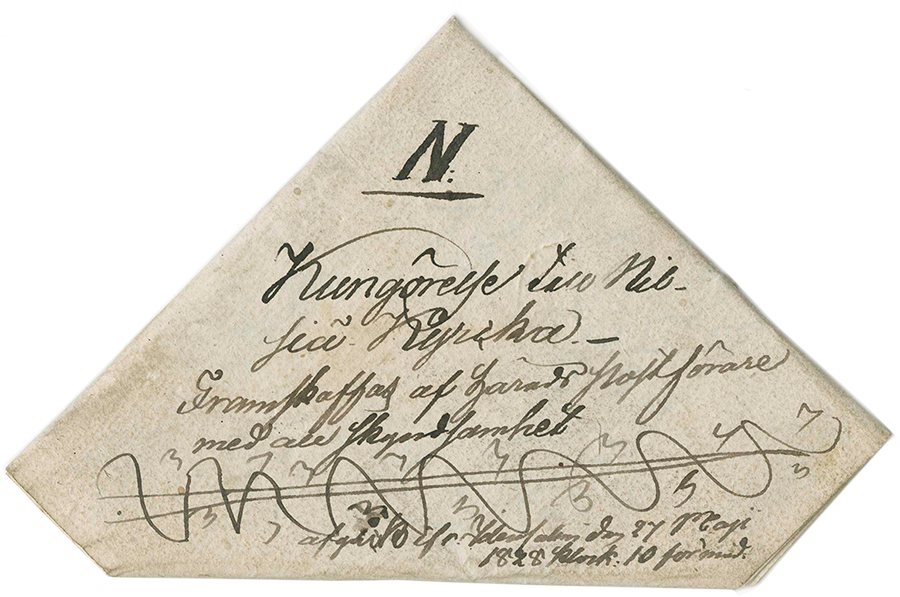 N:
Kungörelse Till Nil-
siä Kyrcka. —
Framskaffas af Härads Postförare
med all skyndsamhet
3 7 7 7 7 7 4 7
3 7 3 3 5 3
afgick ifr. Idensalmi den 27 Maji
1828 klock. 10 förmid.